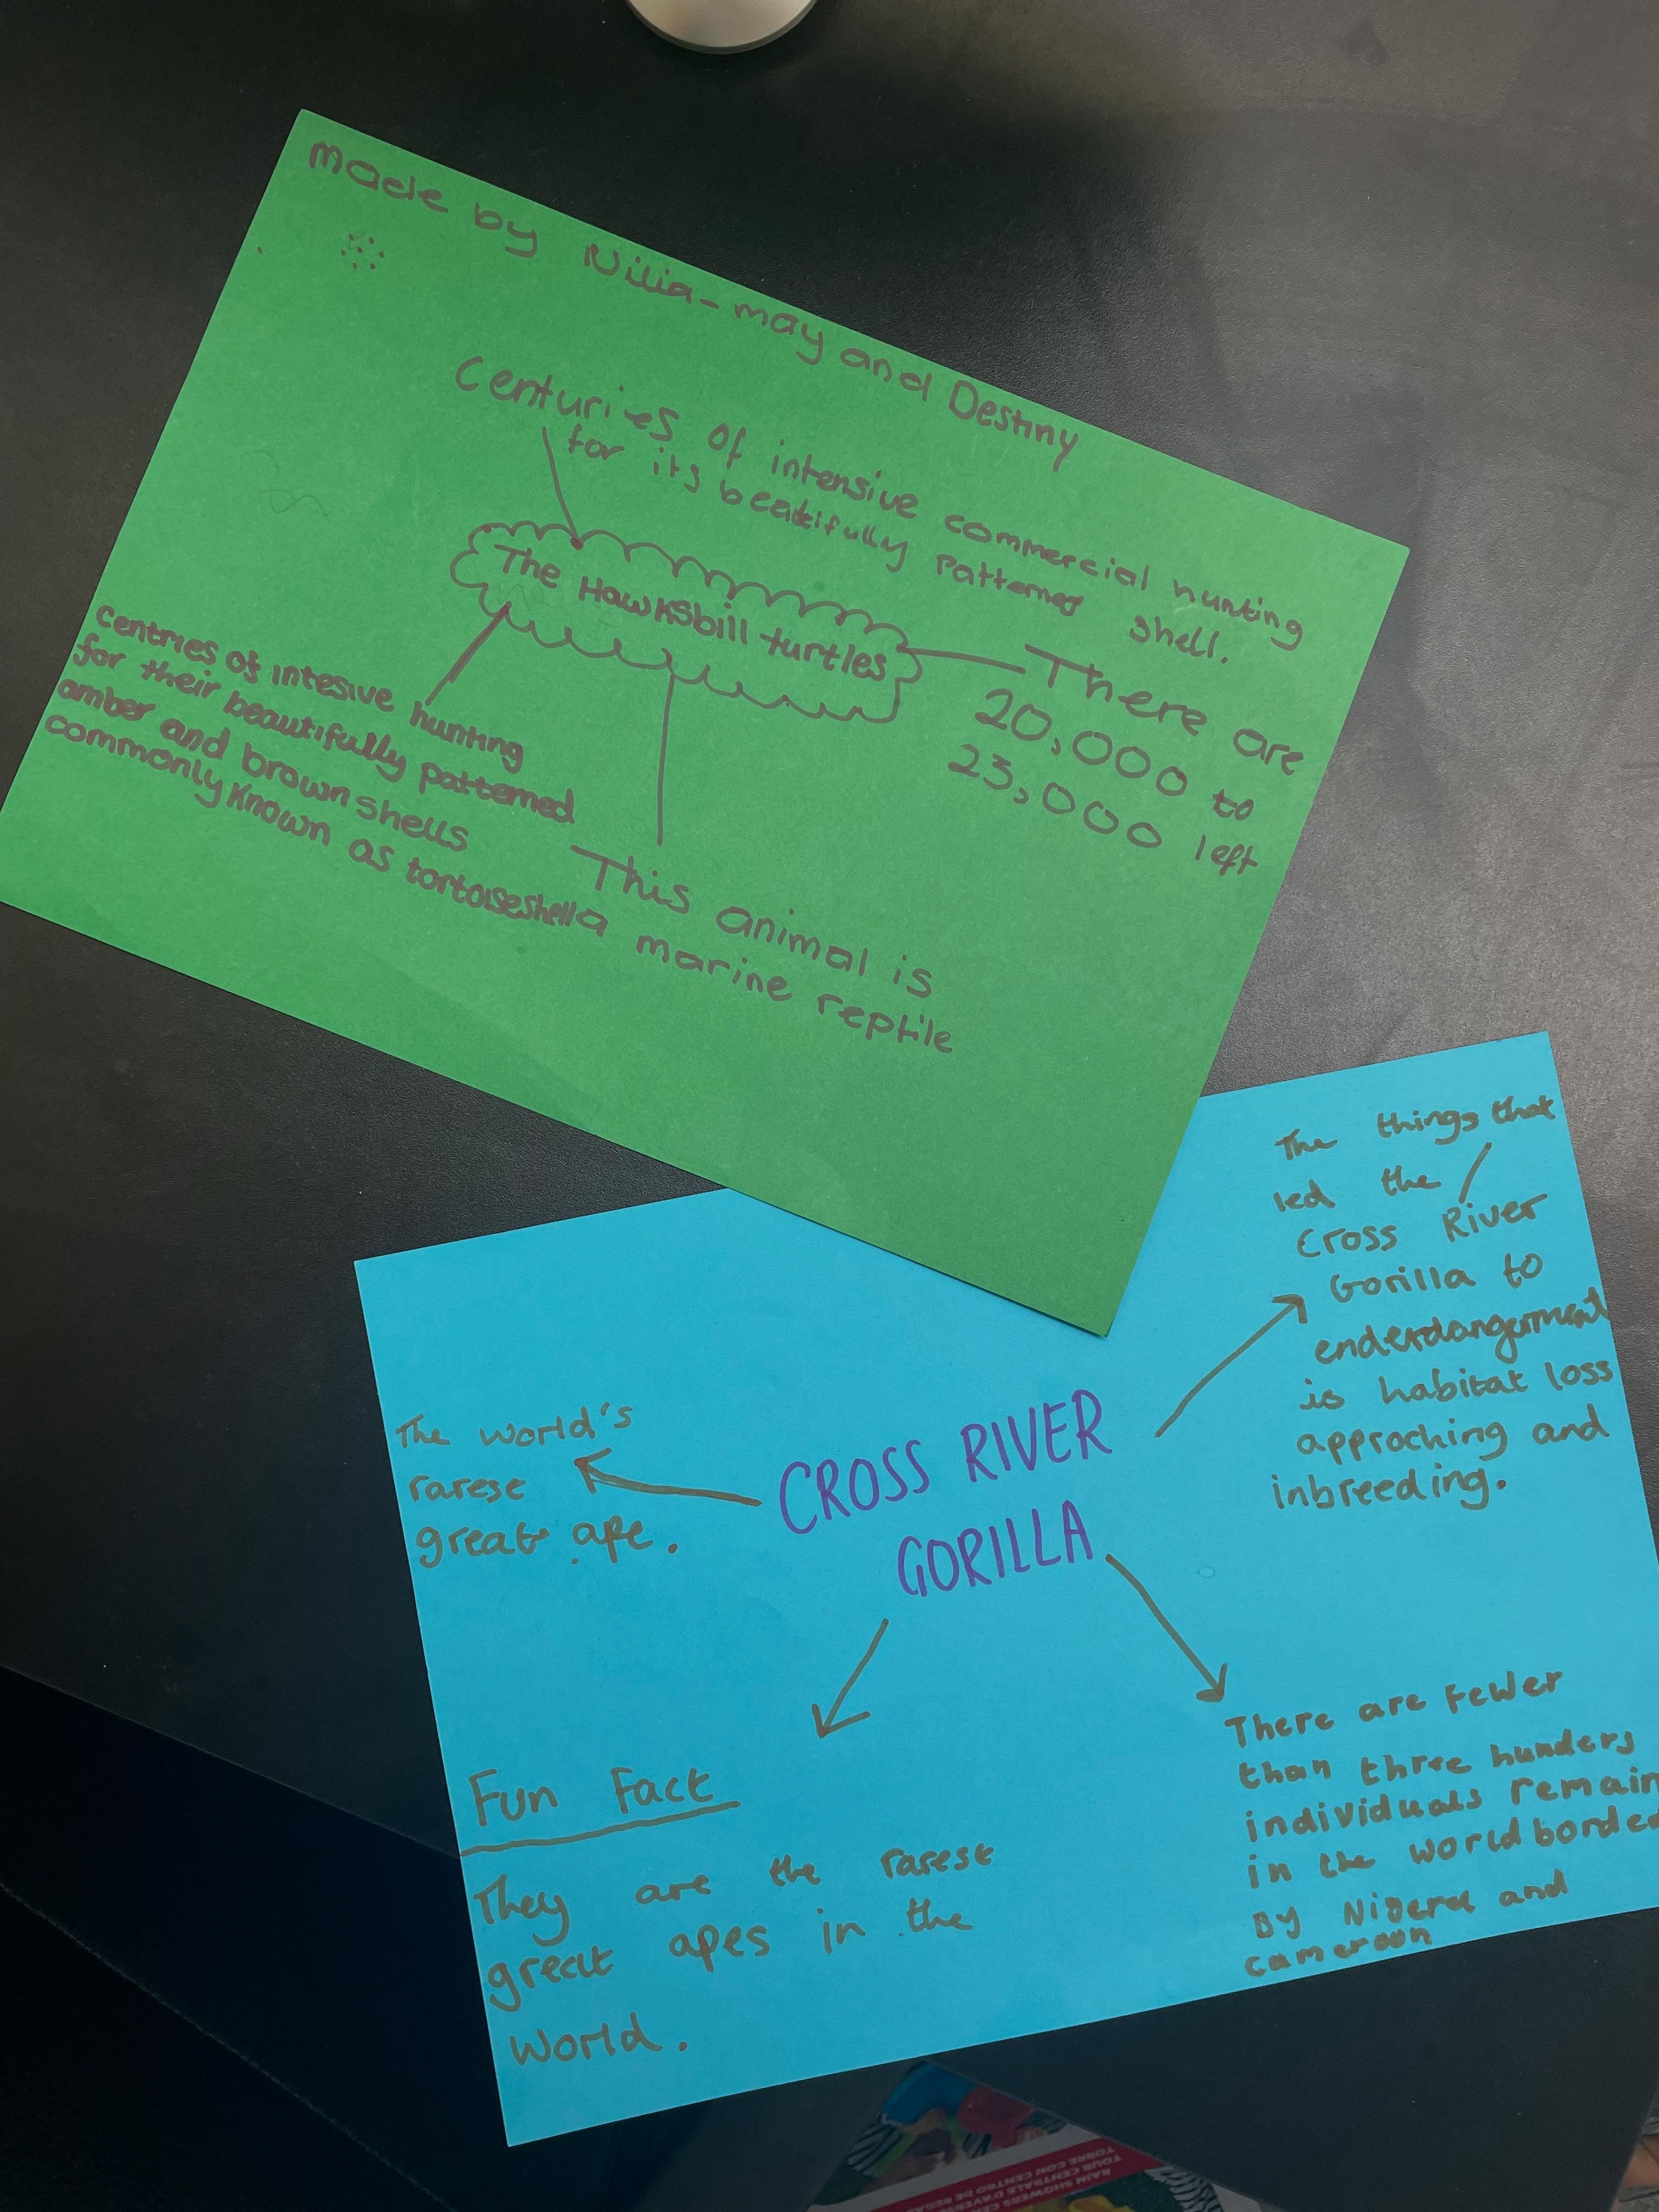 made by Nilia-may and Destiny
Centuries of intensive commercial hunting
for its beatifully Patterned shell.
The Hawksbill turtles
There are
20,000 to
23,000 left
centries of intesive hunting
for their beautifully patterned
amber and brown shells
commonly known as tortoiseshell
This animal is
a marine reptile
The things that
led the
Cross River
Gorilla to
is habitat loss
approching and
inbreeding.
The world's
rarest
great ape.
CROSS RIVER
GORILLA
Fun Fact
They are the rarest
great apes in the
world.
There are fewer
than three hunders
individuals remain
in the world borded
By and
cameroon
RAIN SHOWERS
TOUR CENTRALE D'AVERSE
TORRE CON CENTRO DE